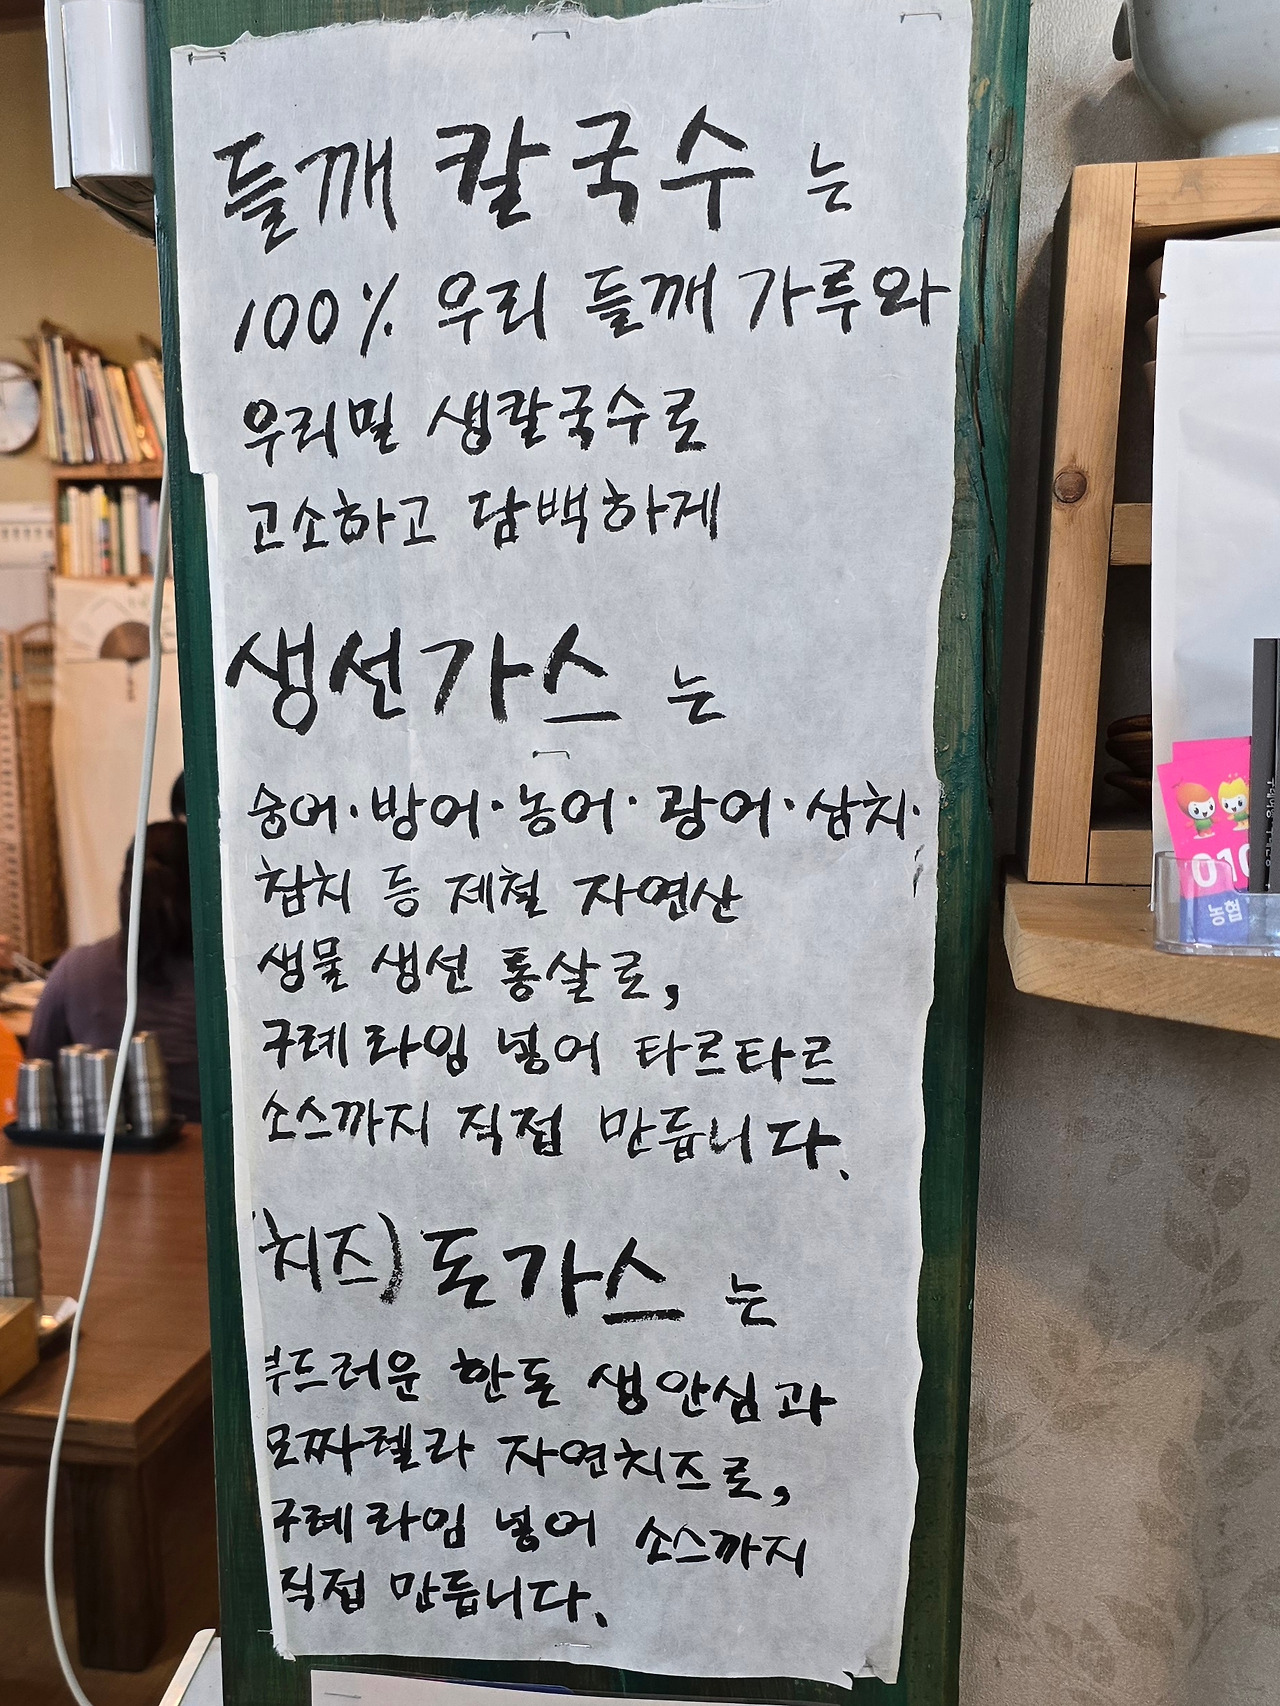 들깨 칼국수 는
100% 우리 들깨 가루와
우리밀 생칼국수로
고소하고 담백하게
생선가스 는
숭어·방어·농어·광어·삼치·
참치 등 제철 자연산
생물 생선 통살로,
구례 라임 넣어 타르타르
소스까지 직접 만듭니다.
(치즈) 돈가스 는
부드러운 한돈 생 안심과
모짜렐라 자연치즈로,
구례 라임 넣어 소스까지
직접 만듭니다.
010
농협